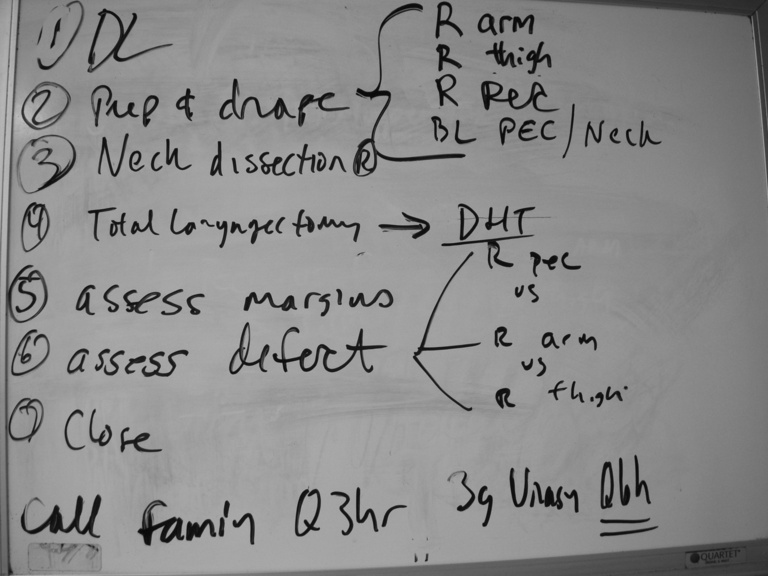 ① DL
② Prep & drape
R arm
R thigh
R pec
BL PEC / Neck
③ Neck dissection Ⓡ
④ Total Laryngectomy → DHT
⑤ assess margins
⑥ assess defect
R pec
vs
R arm
vs
R thigh
⑦ Close
Call Family Q3hr
3g Unasyn Q6h
QUARTET